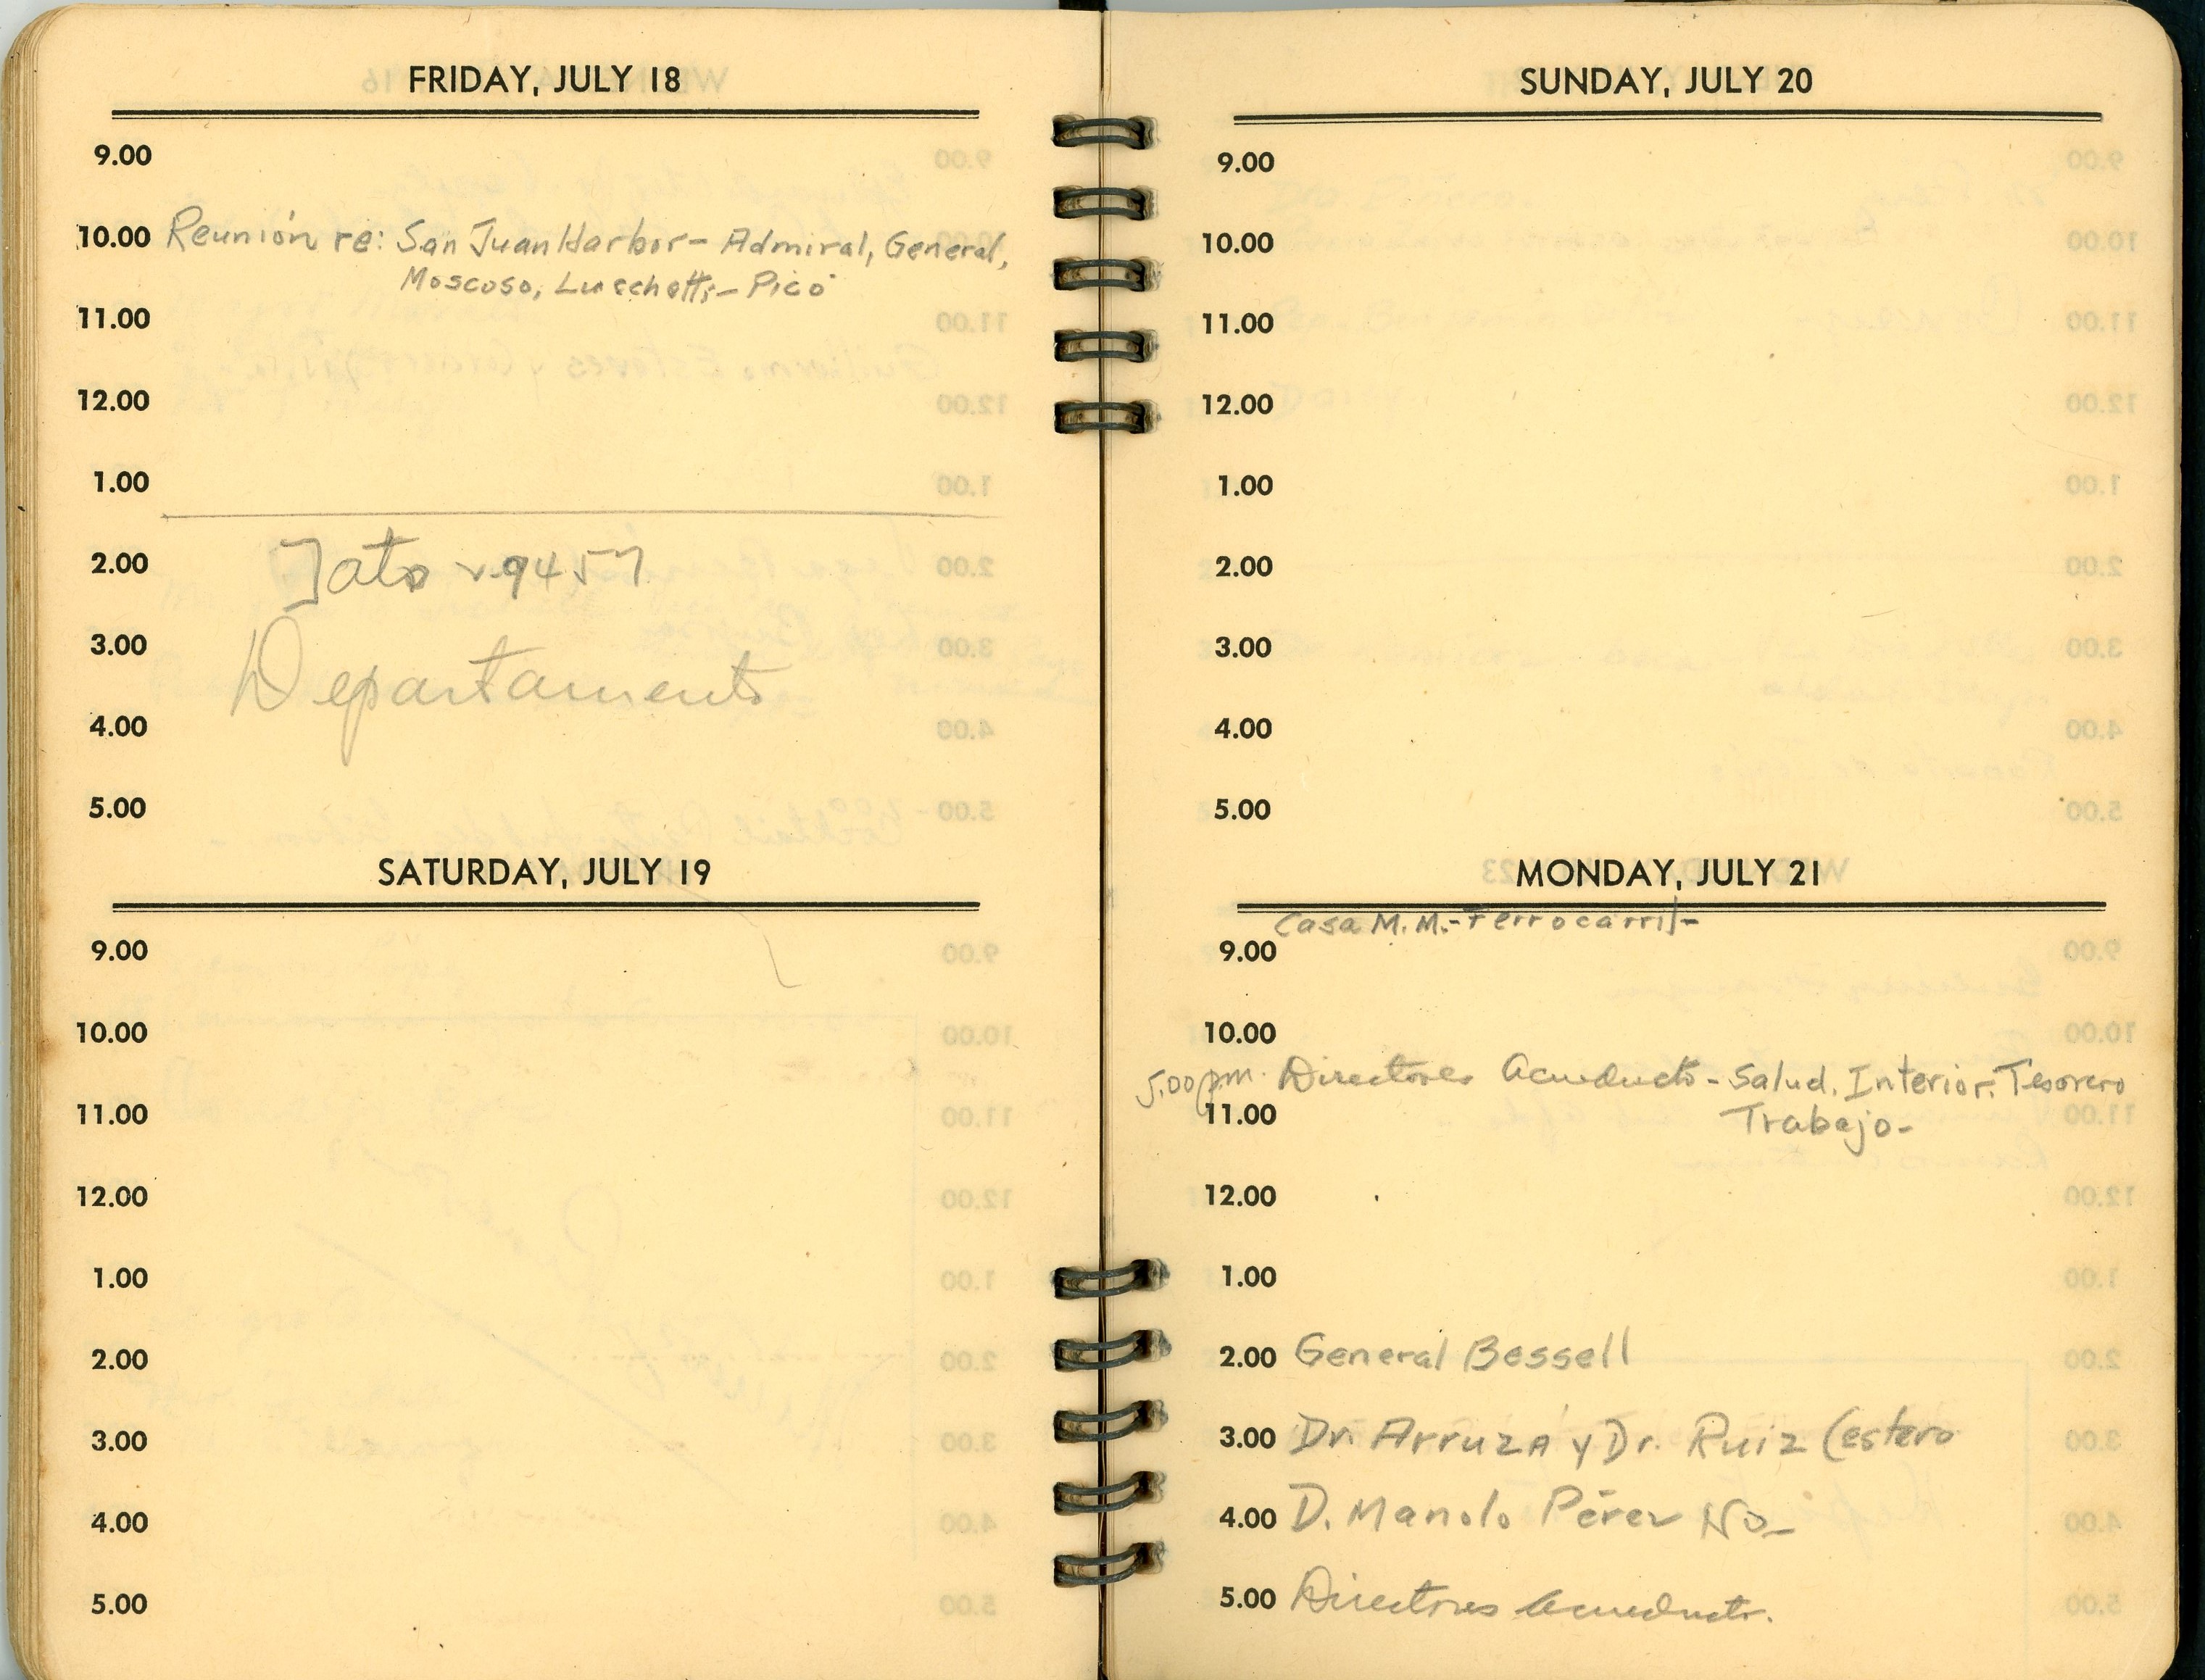 FRIDAY, JULY 18
9.00
10.00 Reunión re: San Juan Harbor - Admiral, General,
Moscoso, Lucchetti - Picó
11.00
12.00
1.00
2.00 Jato 9457
3.00
Departamento
4.00
5.00
SATURDAY, JULY 19
9.00
10.00
11.00
12.00
1.00
2.00
3.00
4.00
5.00
SUNDAY, JULY 20
9.00
10.00
11.00
12.00
1.00
2.00
3.00
4.00
5.00
MONDAY, JULY 21
Casa M. M. - Ferrocarril -
9.00
10.00
5:00 p.m. Directores Acueducto - Salud. Interior. Tesorero
11.00 Trabajo -
12.00
1.00
2.00 General Bessell
3.00 Dr. Arruza y Dr. Ruiz Cestero
4.00 D. Manolo Pérez No -
5.00 Directores Acueducto.